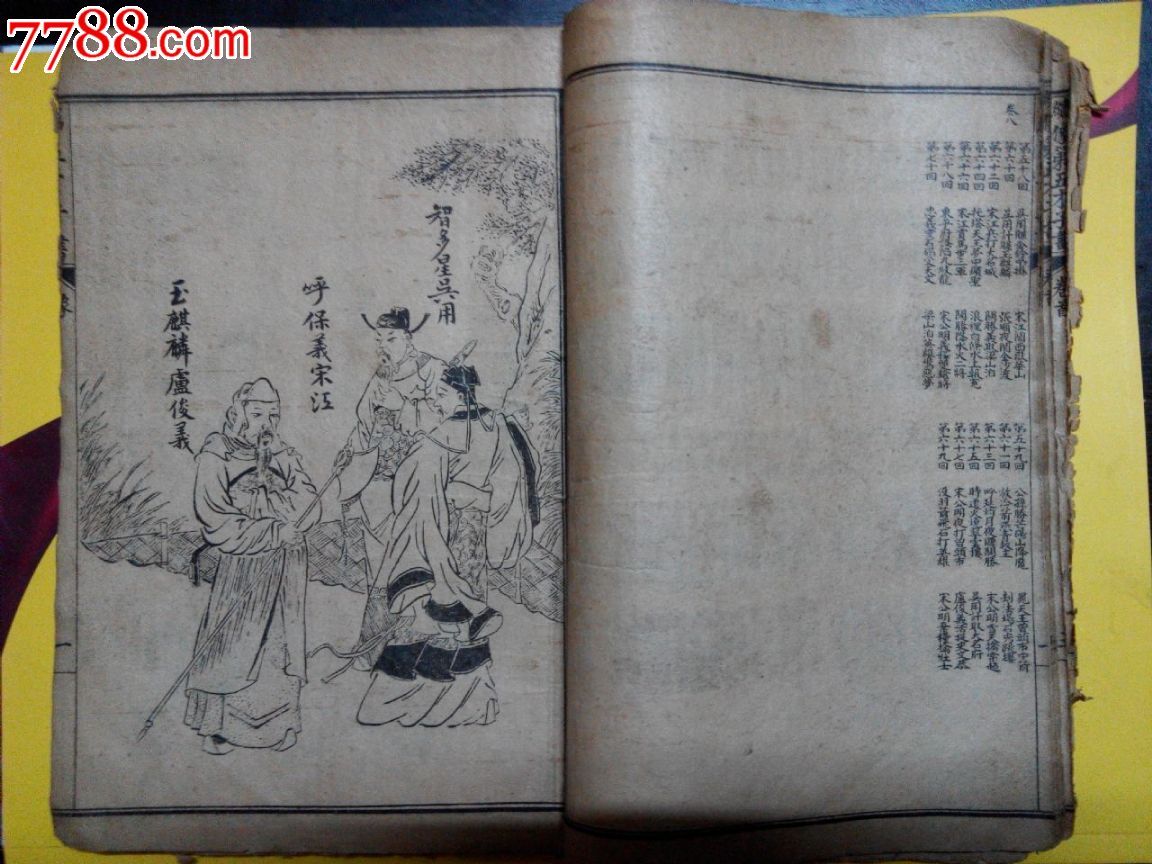 7788.com
卷八
第五十八回 吳用賺金鈴吊掛 宋江鬧西嶽華山 第五十九回 公孫勝芒碭山降魔 晁天王曾頭市中箭
第六十回 吳用計賺玉麒麟 張順夜鬧金沙渡 第六十一回 放冷箭燕青救主 劫法場石秀跳樓
第六十二回 宋江兵打大名城 關勝議取梁山泊 第六十三回 呼延灼月夜賺關勝 宋公明雪天擒索超
第六十四回 托塔天王夢中顯聖 浪裡白條水上報冤 第六十五回 時遷火燒翠雲樓 吳用計取大名府
第六十六回 宋江賞馬步三軍 關勝降水火二將 第六十七回 宋公明夜打曾頭市 盧俊義活捉史文恭
第六十八回 東平府誤陷九紋龍 宋公明義釋雙鎗將 第六十九回 沒羽箭飛石打英雄 宋公明棄糧擒壯士
第七十回 忠義堂石碣受天文 梁山泊英雄驚惡夢
卷首
智多星吳用
呼保義宋江
玉麒麟盧俊義